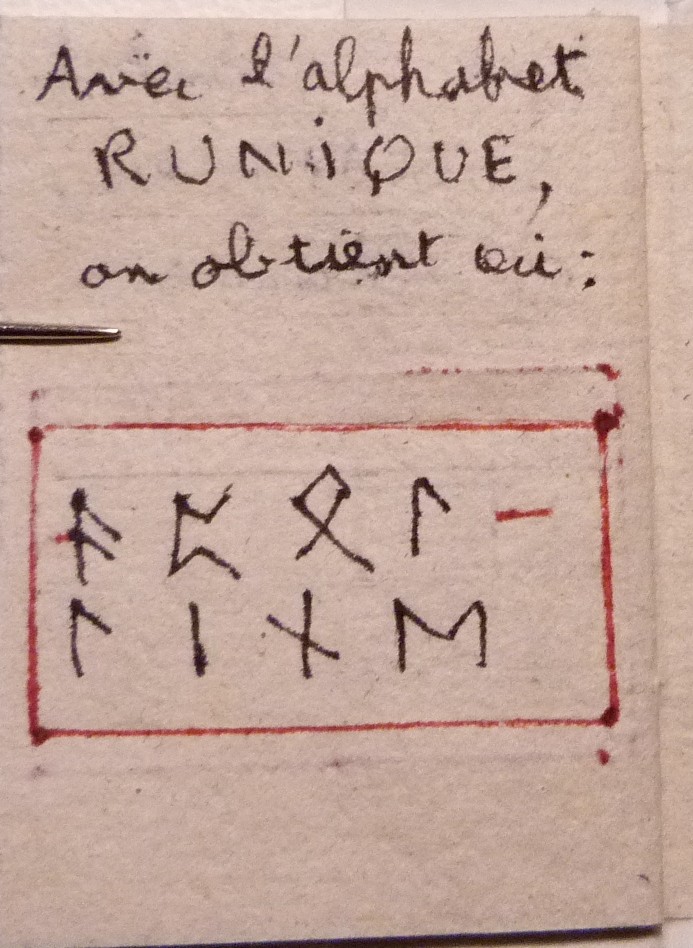 Avec l'alphabet
RUNiQUE,
on obtient ceci :
ᚨ ᛈ ᛟ ᛚ -
ᛚ ᛁ ᚾ ᛖ